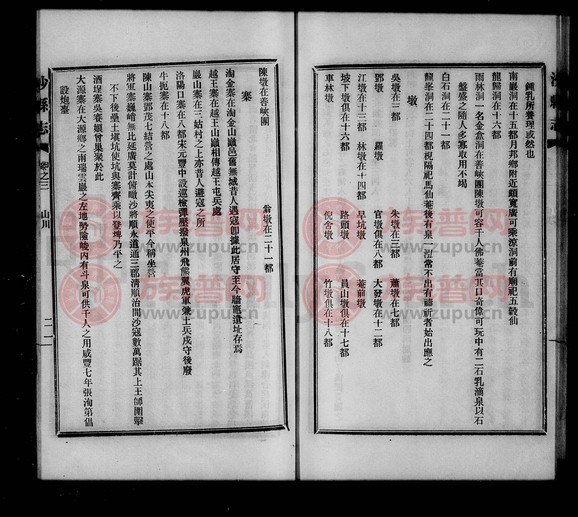 沙縣志
鍾乳所養理或然也
南巖洞在十五都月邦鄉附近頗寬廣可乘涼洞前有廟祀五穀仙
龍歸洞在十六都
雨林洞一名金盒洞在善峽團陳墩可容千人佛菴當其口奇偉可玩中有二石乳滴泉以石
盤盛之隨人多寡取用不竭
白石洞在二十都
龍峯洞在二十四都視隔祀馬仙菴後有泉一泓常不出有禱祈者始出應之
墩
吳墩在三都 朱墩在三都 蕭墩在七都
鄧墩 羅墩 官墩俱在八都 大發墩在十二都
江墩在十三都 林墩在十四都 旱坑墩 菴前墩
坡下墩俱在十六都 路頭墩 員山墩俱在十七都
車林墩 倪舍墩 竹墩俱在十八都
陳墩在善峽團 翁墩在二十一都
寨
淘金寨在淘金山巔邑舊無城昔人遇寇卽據此居守至今牆應遺址存焉
越王寨在越王山巔相傳越王屯兵處
巖山寨在三姑村之上亦昔人避寇之所
洛陽口寨在八都宋元豐中設巡檢彈壓撥泉州飛熊翼虎軍兼土兵戍守後廢
牛扼寨在十八都
陳山寨鄧茂七結營之處山本尖夷之使平今稱坐營
將軍寨巍峭無比延廣莫計俯瞰沙將順永道通三郡淸順治間沙寇數萬踞其上王師圍擊
不下後壘土堪坑使坑與寨齊乘以登埤乃平之
酒埕寨吳賽娘曾巢聚於此
大源寨在大源鄉之南瑞雲巖之左地勢險峻內有斗泉可供千人之用咸豐七年張洵第倡
設炮臺
沙縣志
卷之三
山川
二一
族譜网
www.zupu.cn